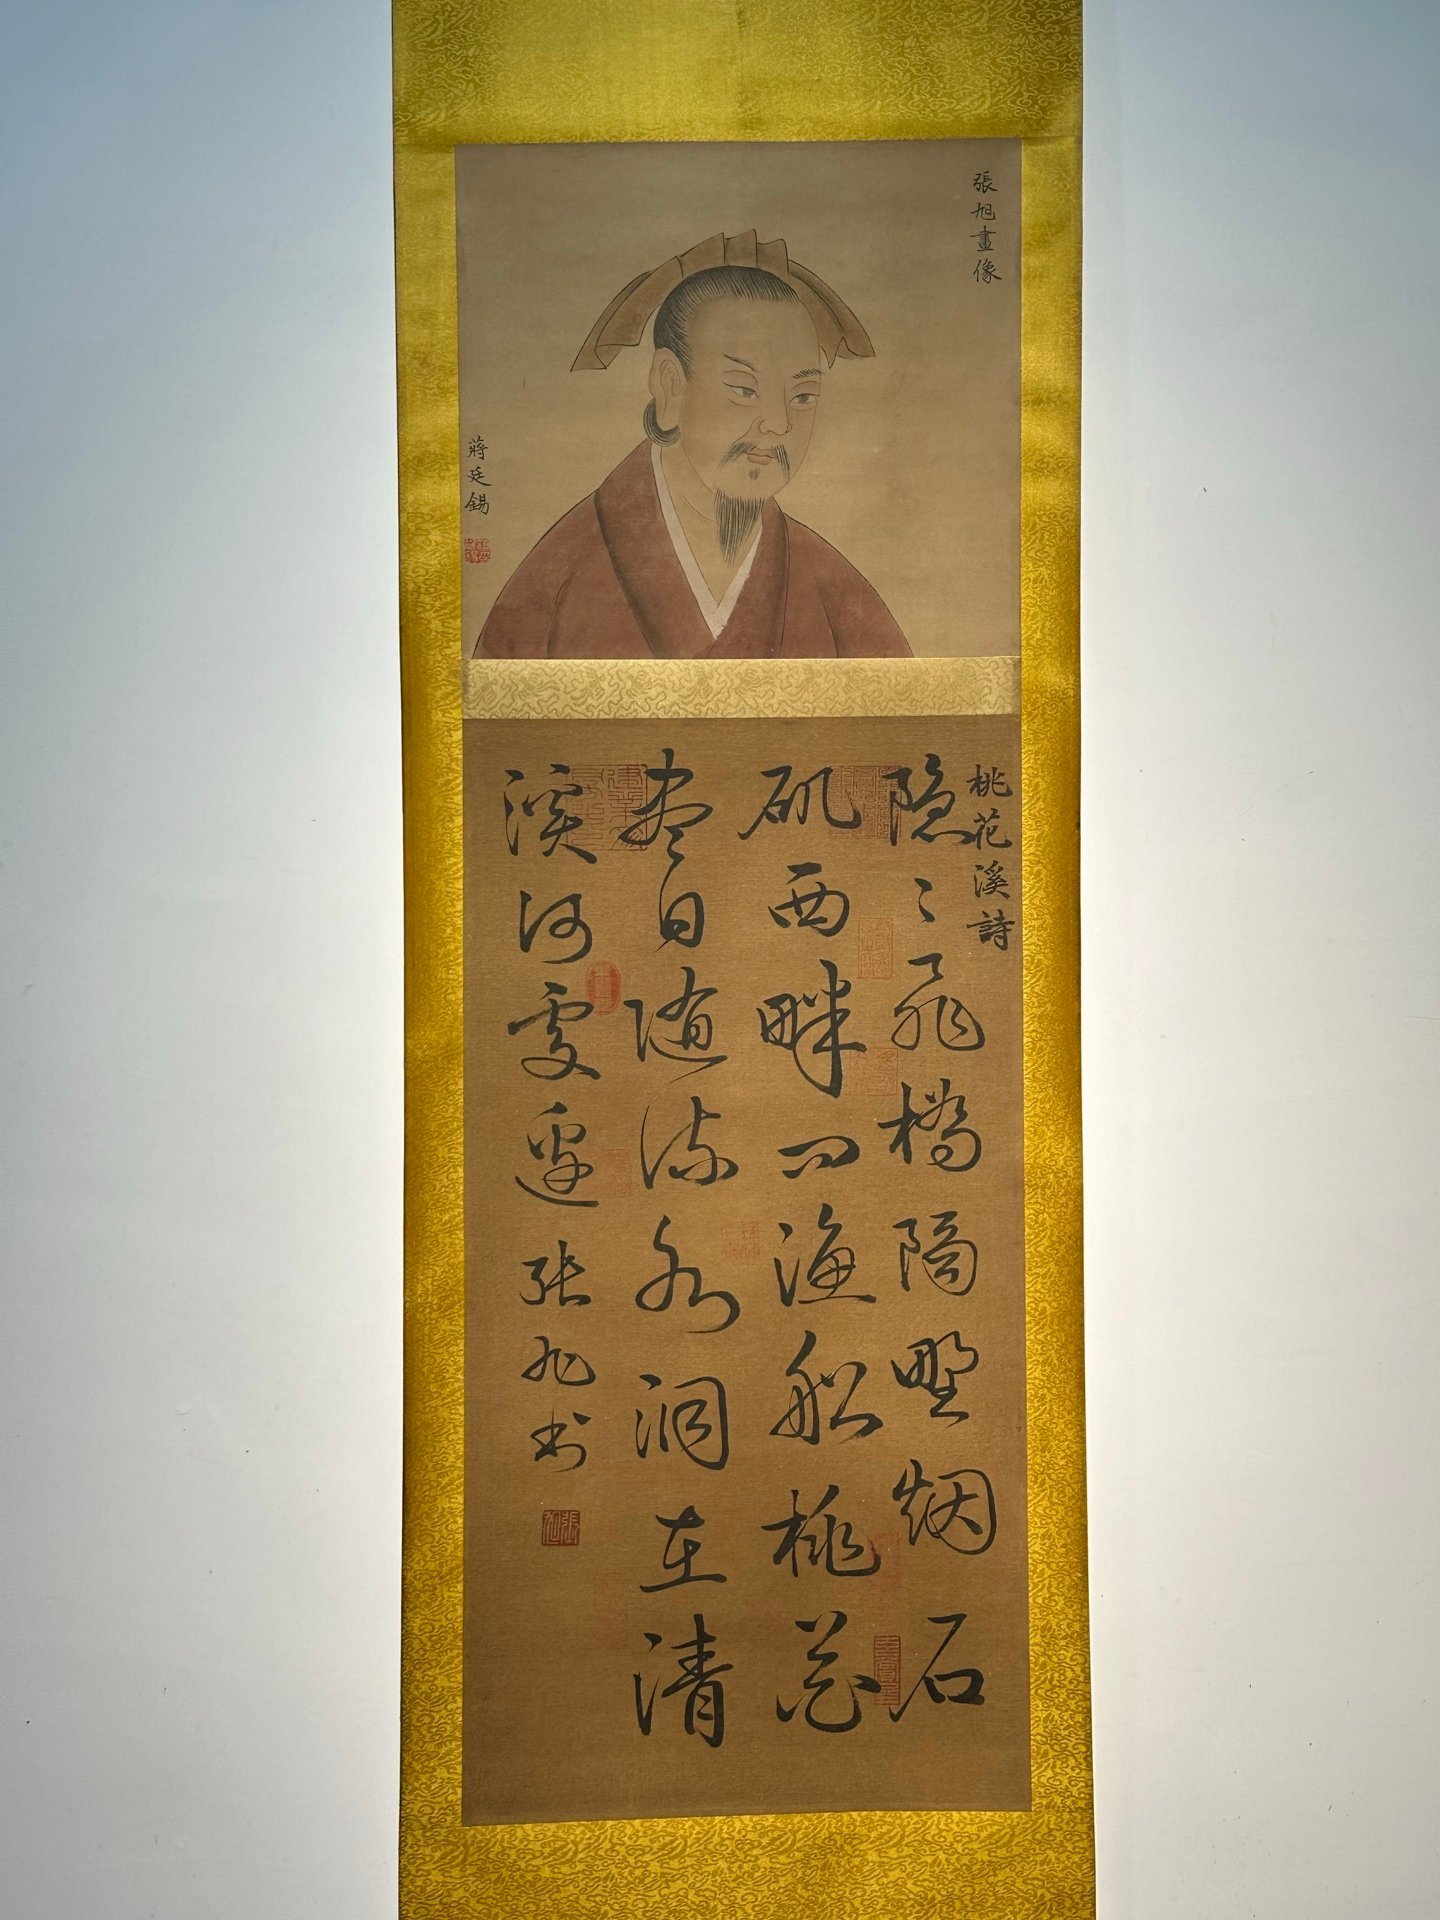 張旭畫像
蔣廷錫
桃花溪詩
隐〻飛橋隔野烟石
矶西畔问渔船桃花
尽日随流水洞在清
溪何處邊张旭书
張旭